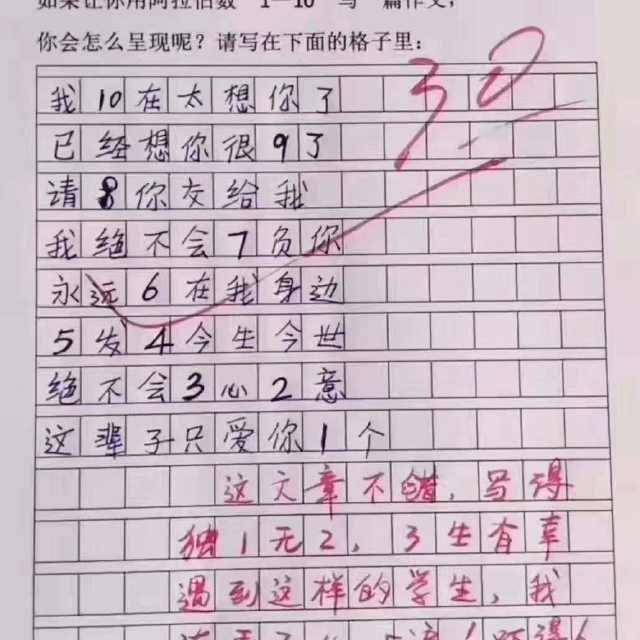 如果让你用阿拉伯数“1—10”写一篇作文,
你会怎么呈现呢?请写在下面的格子里:
30
我10在太想你了
已经想你很9了
请8你交给我
我绝不会7负你
永远6在我身边
5发4今生今世
绝不会3心2意
这辈子只爱你1个
这文章不错,写得
独1无2,3生有幸
遇到这样的学生,我